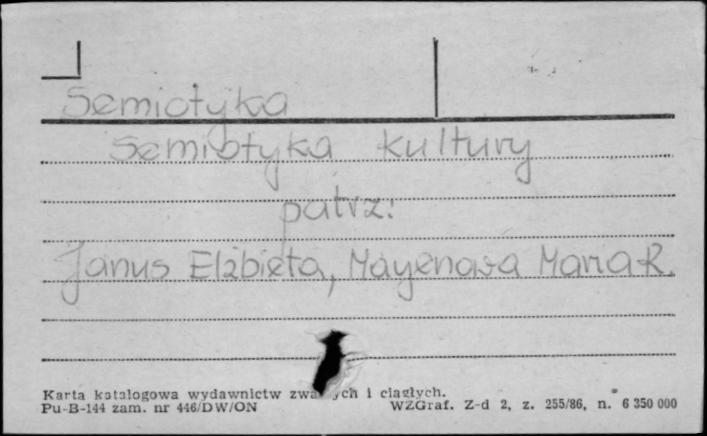 Semiotyka
Semiotyka kultury
patrz:
Janus Elżbieta, Mayenowa Maria R.
Karta katalogowa wydawnictw i ciągłych.
Pu-B-144 zam. nr 446/DW/ON WZGraf. Z-d 2, z. 255/86, n. 6 350 000